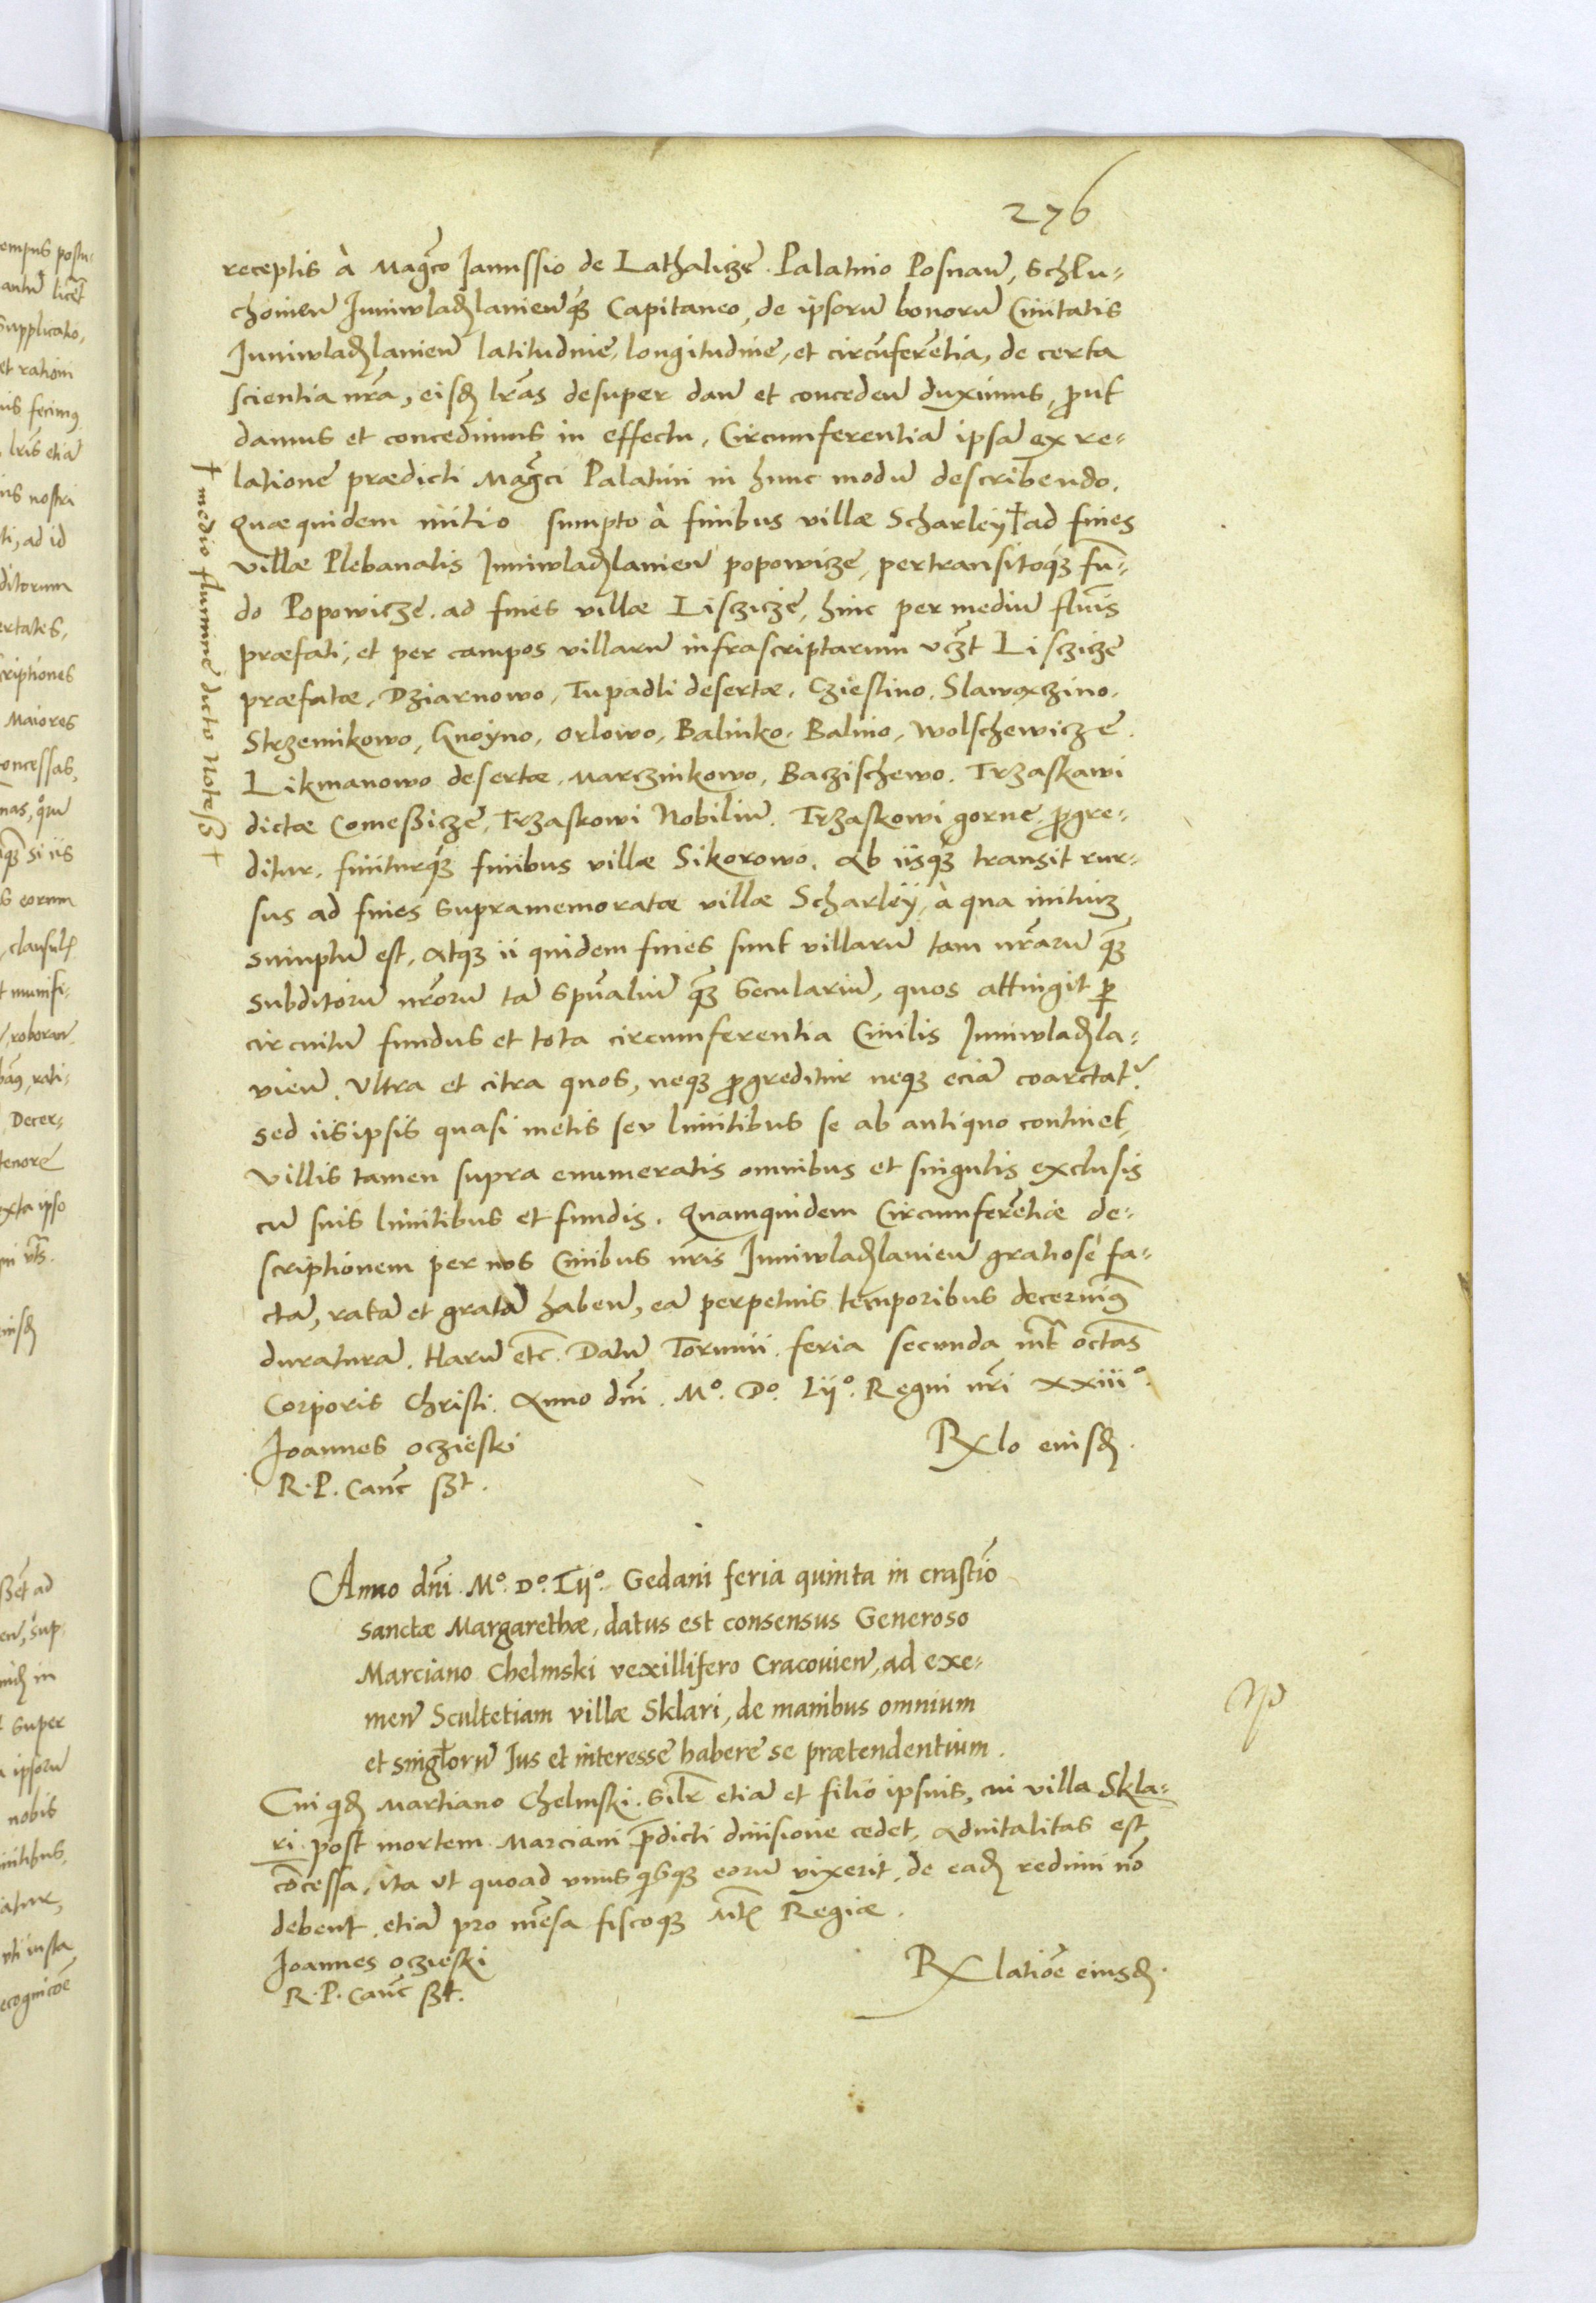 276
receptis à Mag̃co Janussio de Lathaliczẽ Palatino Posnaň, Schlu-
choinen̄ Juniwladẜlaniен̄q3 Capitaneo, de ipsorū bonorū Ciuitatis
Juniwladẜlauien̄ latitudinē, longitudinē, et circūferētia, de certa
scientia nr̃a, eisd̃ lr̃as desuper dan̄ et conceden̄ duximus, ꝓut
damus et concedimus in effectu, Circumferentiā ipsā ex re-
latione prædicti Mag̃ci Palatini in hunc modū describendo.
Quæquidem initio sumpto à finibus villæ Scharley † ad fines
villæ Plebanalis Juniwladẜlauien̄ popowiczẽ, pertransitoq3 fun̄-
do Popowiczẽ. ad fines villæ Liscziczẽ, hinc per mediū fluĩs
præfati, et per campos villarū infrascriptarum vcz̃t Lisczicze
præfatæ, Dziarnowo, Tupadli desertæ, Cziestino, Slawoxczino,
Strzemikowo, Gnoyno, Orlowo, Balinko, Balino, Wolschewiczẽ
Likmanowo desertæ, Marczinkowo, Baczischewo, Trzaskawi
dictæ Comeßiczẽ, Trzaskowi Nobiliū. Trzaskowi gorne ꝓgre-
ditur, finiturq3 finibus villæ Sikorowo. Ab iisq3 transit rur-
sus ad fines supramemoratæ villæ Scharleÿ, à qua initium
sumptū est, Atq3 ii quidem fines sunt villarū tam nr̃arū q̃3
subditorū nr̃orū tā spũaliū q̃3 seculariū, quos attingit ꝑ
circuitū fundus et tota circumferentia Ciuilis Juniwladẜla-
vien̄. Ultra et citra quos, neq3 ꝓgreditur neq3 eciā coarctat̃.
sed iisipsis quasi metis seu limitibus se ab antiquo continet,
villis tamen supra enumeratis omnibus et singulis exclusis
cū suis limitibus et fundis. Quamquidem Circumferētiæ de-
scriptionem per nos Ciuibus nr̃is Juniwladẜlauien̄ gratiosè fa-
ctā, ratā et gratā haben̄, eā perpetuis temporibus decernim9
duraturā. Harū etc̃. Datū Torunii feria secunda inf̃ octãs
Corporis Christi. Anno dñi. Mº. Dº. Lijº. Regni nr̃i xxiiiº.
Joannes oczieski
R. P. Canc̃ sßt.
Rxlo eiusd̃.
† medio flumine dicto Noteß †
Anno dñi. Mº. Dº. Lijº. Gedani feria quinta in crastīo
sanctæ Margarethæ, datus est consensus Generoso
Marciano Chelmski vexillifero Cracouien̄, ad exe-
men̄ Scultetiam villæ Sklari, de manibus omnium
et singl̃orū Jus et interesse habere se prætendentium.
Cui qd̃ Martiano Chelmski. Sil̃r etiā et filio ipsius, cui villa Skla-
ri post mortem Marciani p̄dicti diuisione cedet, Aduitalitas est
cōcessa, ita ut quoad unusqsq3 eorū vixerit, de ead̃ redimi nō
debent, etiā pro mẽsa fiscoq3 Mt̃is Regiæ.
Joannes oczieski
R. P. Canc̃ sßt.
Rx latiõe eiusd̃.